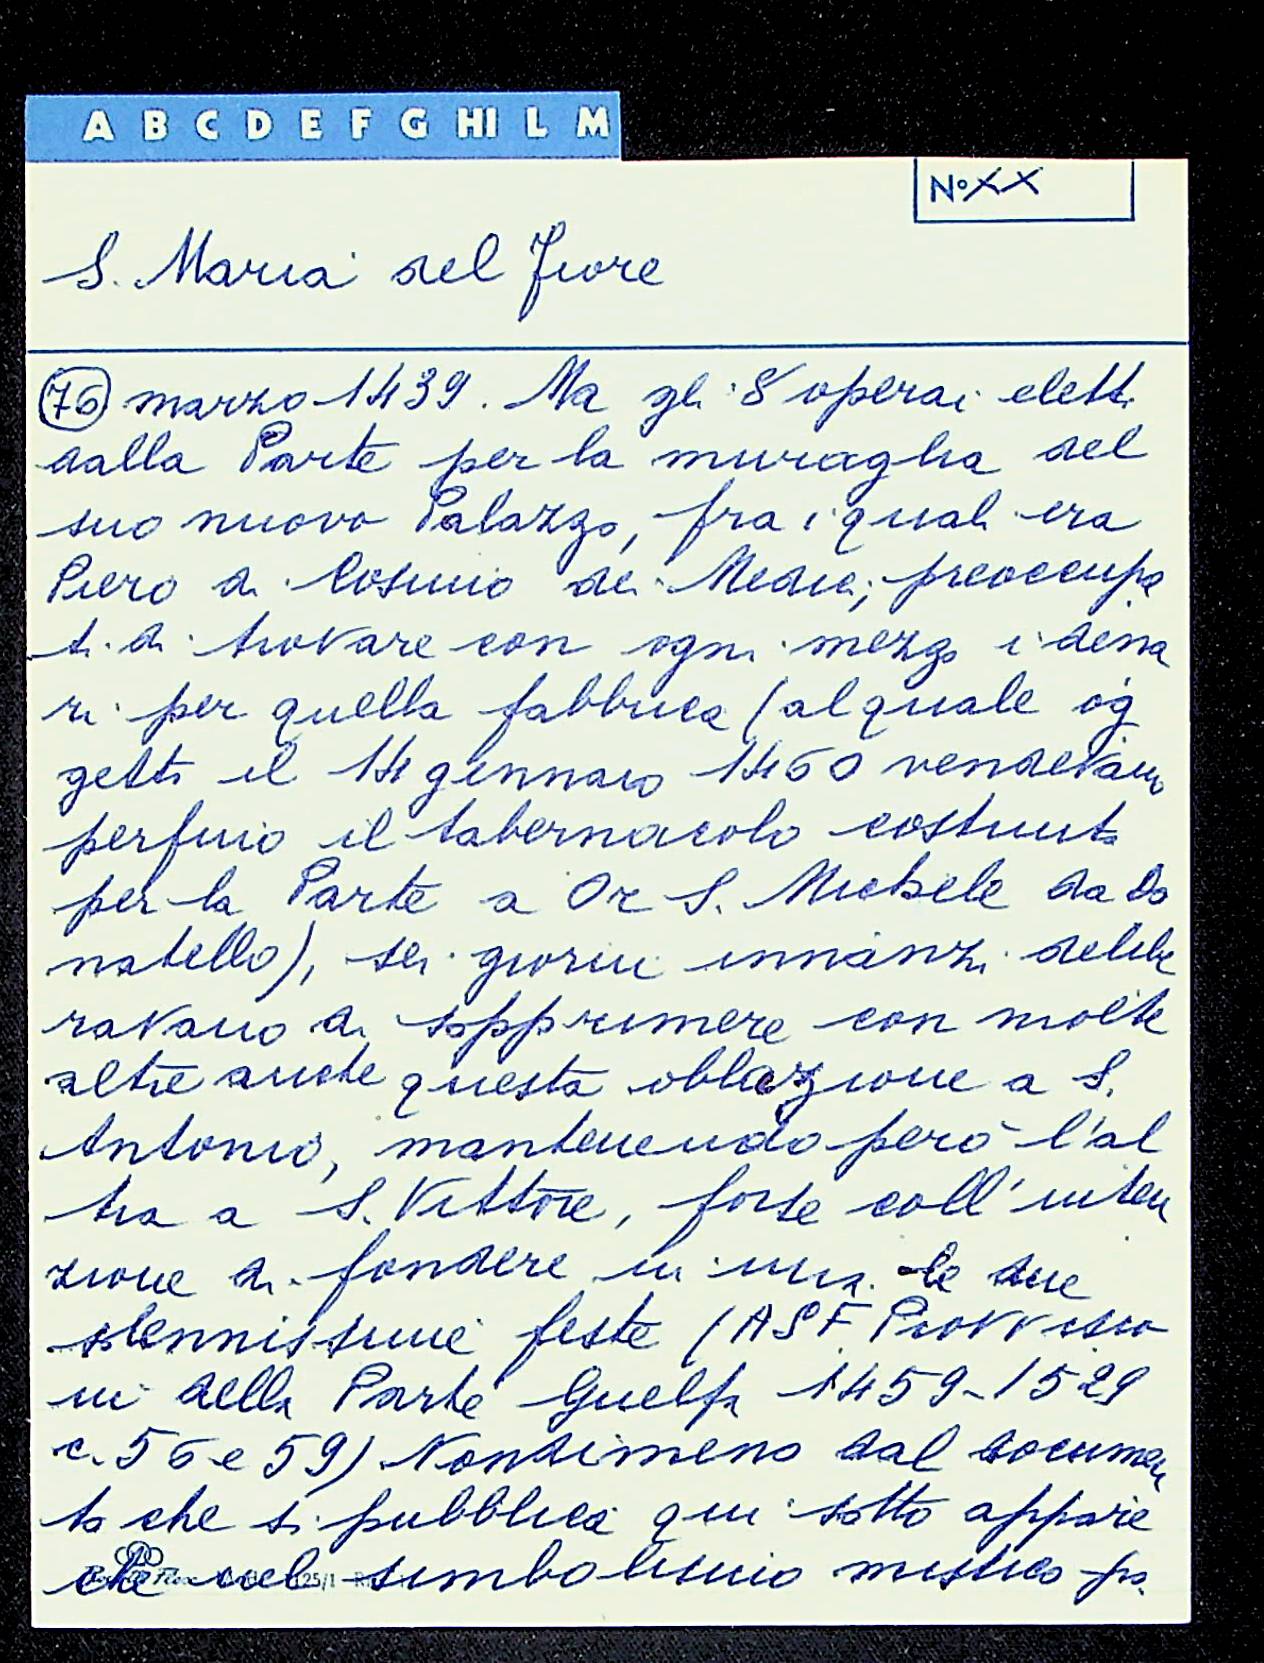 A B C D E F G HI L M
N° XX
S. Maria del Fiore
76 marzo 1439. Ma gli 8 operai eletti
dalla Parte per la muraglia del
suo nuovo Palazzo, fra i quali era
Piero di Cosimo dei Medici, preoccupa
ti di trovare con ogni mezzo i dena
ri per quella fabbrica (al quale og
getto il 14 gennaio 1460 vendevano
perfino il tabernacolo costruito
per la Parte a Or S. Michele da Do
natello), sei giorni innanzi delibe
ravano di sopprimere con molte
altre anche questa oblazione a S.
Antonio, mantenendo però l'al
tra a S. Vittore, forse coll'inten
zione di fondere in una le due
solennissime feste (ASF Provvisio
ni della Parte Guelfa 1459-1529
c. 56 e 59) Nondimeno dal documen
to che si pubblica qui sotto appare
che nel simbolismo mistico